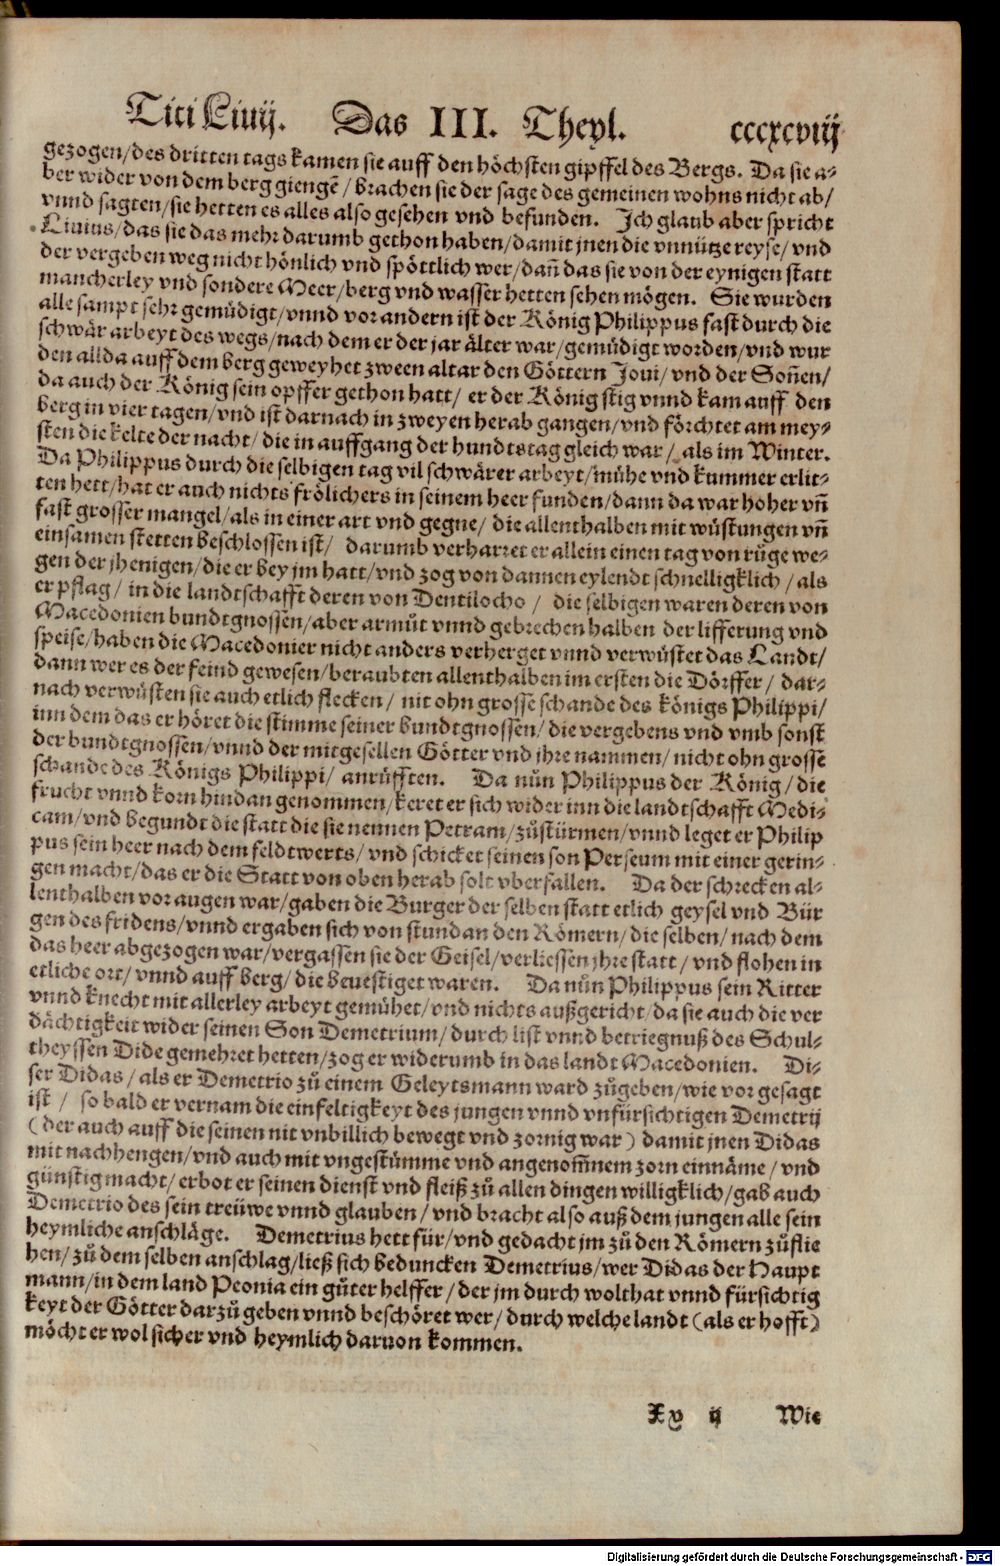 Titi Liuij. Das III. Theyl. cccxcviij
gezogen/des dritten tags kamen sie auff den höchsten gipffel des Bergs. Da sie a-
ber wider von dem berg giengē/ brachen sie der sage des gemeinen wohns nicht ab/
vnnd sagten/sie hetten es alles also gesehen vnd befunden. Ich glaub aber spricht
Liuius/das sie das mehr darumb gethon haben/damit jnen die vnnütze reyse/ vnd
der vergeben weg nicht hönlich vnd spöttlich wer/dañ das sie von der eynigen statt
mancherley vnd sondere Meer/berg vnd wasser hetten sehen mögen. Sie wurden
alle sampt sehr gemüdigt/vnnd vor andern ist der König Philippus fast durch die
schwär arbeyt des wegs/nach dem er der jar älter war/gemüdigt worden/vnd wur
den allda auff dem berg geweyhet zween altar den Göttern Joui/ vnd der Soñen/
da auch der König sein opffer gethon hatt/ er der König stig vnnd kam auff den
berg in vier tagen/vnd ist darnach in zweyen herab gangen/vnd förchtet am mey-
sten die kelte der nacht/ die in auffgang der hundtstag gleich war/ als im Winter.
Da Philippus durch die selbigen tag vil schwärer arbeyt/mühe vnd kummer erlit-
ten hett/hat er auch nichts frölichers in seinem heer funden/dann da war hoher vñ
fast grosser mangel/als in einer art vnd gegne/ die allenthalben mit wüstungen vñ
einsamen stetten beschlossen ist/ darumb verharret er allein einen tag von rüge we-
gen der jhenigen/die er bey jm hatt/vnd zog von dannen eylendt schnelligklich/als
er pflag/ in die landtschafft deren von Dentilocho/ die selbigen waren deren von
Macedonien bundtgnossen/aber armůt vnnd gebrechen halben der lifferung vnd
speise/haben die Macedonier nicht anders verherget vnnd verwüstet das Landt/
dann wer es der feind gewesen/beraubten allenthalben im ersten die Dörffer/ dar-
nach verwüsten sie auch etlich flecken/ nit ohn grosse schande des königs Philippi/
inn dem das er höret die stimme seiner bundtgnossen/die vergebens vnd vmb sonst
der bundtgnossen/vnnd der mitgesellen Götter vnd jhre nammen/nicht ohn grosse
schande des Königs Philippi/ anrüfften. Da nůn Philippus der König/die
frucht vnnd korn hindan genommen/keret er sich wider inn die landtschafft Medi-
cam/vnd begundt die statt die sie nennen Petram/zůstürmen/vnnd leget er Philip
pus sein heer nach dem feldtwerts/vnd schicket seinen son Perseum mit einer gerin-
gen macht/das er die Statt von oben herab solt vberfallen. Da der schrecken al-
lenthalben vor augen war/gaben die Burger der selben statt etlich geysel vnd Bür
gen des fridens/vnnd ergaben sich von stund an den Römern/die selben/nach dem
das heer abgezogen war/vergassen sie der Geisel/verliessen jhre statt/vnd flohen in
etliche ort/vnnd auff berg/die beuestiget waren. Da nůn Philippus sein Ritter
vnnd knecht mit allerley arbeyt gemühet/vnd nichts außgericht/da sie auch die ver
dächtigkeit wider seinen Son Demetrium/durch list vnnd betriegnuß des Schul-
theyssen Dide gemehret hetten/zog er widerumb in das landt Macedonien. Di-
ser Didas/als er Demetrio zů einem Geleytsmann ward zůgeben/wie vor gesagt
ist/ so bald er vernam die einfeltigkeyt des jungen vnnd vnfürsichtigen Demetrij
(der auch auff die seinen nit vnbillich bewegt vnd zornig war) damit jnen Didas
mit nachhengen/vnd auch mit vngestümme vnd angenom̃nem zorn einnäme/vnd
günstig macht/erbot er seinen dienst vnd fleiß zů allen dingen willigklich/gab auch
Demetrio des sein treüwe vnnd glauben/vnd bracht also auß dem jungen alle sein
heymliche anschläge. Demetrius hett für/vnd gedacht jm zů den Römern zůflie
hen/zů dem selben anschlag/ließ sich beduncken Demetrius/wer Didas der Haupt
mann/in dem land Peonia ein gůter helffer/der jm durch wolthat vnnd fürsichtig
keyt der Götter darzů geben vnnd beschöret wer/durch welche landt (als er hofft)
möcht er wol sicher vnd heymlich daruon kommen.
Xy ij Wie
Digitalisierung gefördert durch die Deutsche Forschungsgemeinschaft - DFG